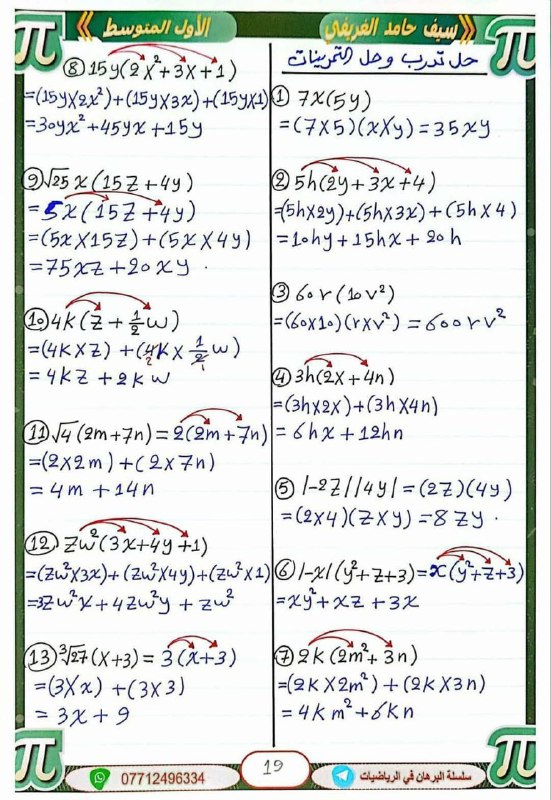 سيف حامد الغريفي
الأول المتوسط
حل تدرب وحل التمرينات
① 7x(5y)
=(7×5)(x×y)=35xy
② 5h(2y+3x+4)
=(5h×2y)+(5h×3x)+(5h×4)
=10hy+15hx+20h
③ 60r(10v²)
=(60×10)(r×v²)=600rv²
④ 3h(2x+4n)
=(3h×2x)+(3h×4n)
=6hx+12hn
⑤ |-2z||4y|=(2z)(4y)
=(2×4)(z×y)=8zy.
⑥ |-x|(y²+z+3)=x(y²+z+3)
=xy²+xz+3x
⑦ 2k(2m²+3n)
=(2k×2m²)+(2k×3n)
=4km²+6kn
⑧ 15y(2x²+3x+1)
=(15y×2x²)+(15y×3x)+(15y×1)
=30yx²+45yx+15y
⑨ √25x(15z+4y)
=5x(15z+4y)
=(5x×15z)+(5x×4y)
=75xz+20xy.
⑩ 4k(z+1/2w)
=(4k×z)+(4k×1/2w)
2 1
=4kz+2kw
⑪ √4(2m+7n)=2(2m+7n)
=(2×2m)+(2×7n)
=4m+14n
⑫ zw²(3x+4y+1)
=(zw²×3x)+(zw²×4y)+(zw²×1)
=3zw²x+4zw²y+zw²
⑬ ∛27(x+3)=3(x+3)
=(3×x)+(3×3)
=3x+9
07712496334
19
سلسلة البرهان في الرياضيات